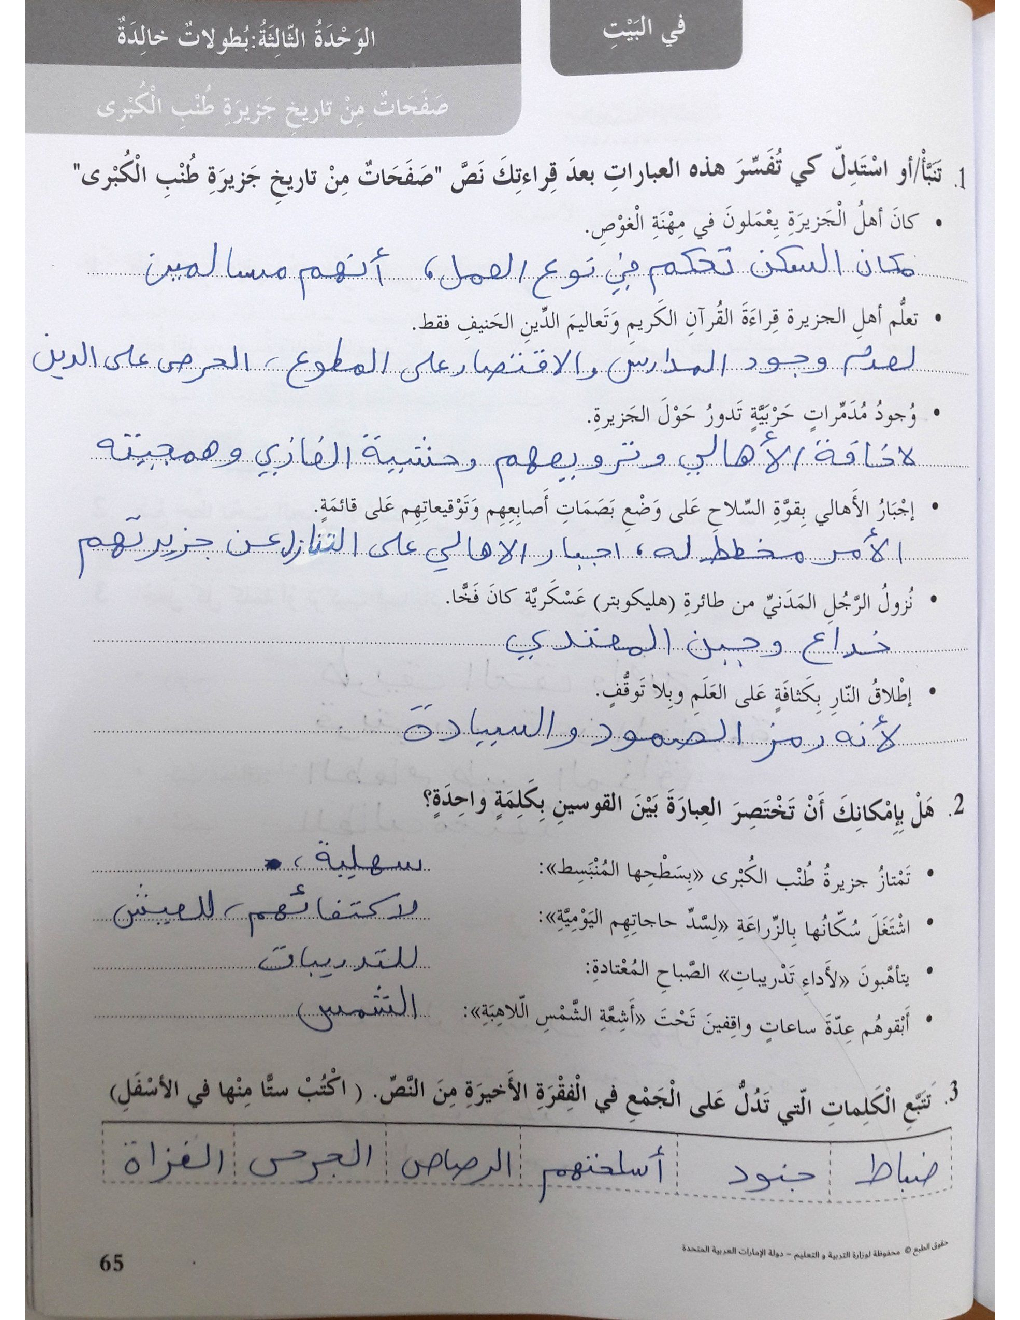 في البَيْتِ
الوَحْدَةُ الثّالِثَةُ: بُطولاتٌ خالِدَةٌ
صَفَحَاتٌ مِنْ تاريخِ جَزيرَةِ طُنْبِ الْكُبْرى
1. تَنَبَّأْ/أو اسْتَدِلّ كي تُفَسِّرَ هذه العباراتِ بعدَ قِراءتِكَ نَصَّ "صَفَحَاتٌ مِنْ تاريخِ جَزيرَةِ طُنْبِ الْكُبْرى"
• كانَ أهلُ الْجَزيرَةِ يعْمَلونَ في مِهْنَةِ الْغوْصِ.
مكان السكن تحكم في نوع العمل، أنهم مسالمين
• تعلُّم أهلِ الجزيرة قِراءَةَ القُرآنِ الكَريمِ وَتَعاليمَ الدِّينِ الحَنيفِ فقط.
لعدم وجود المدارس والاقتصار على المطوع، الحرص على الدين
• وُجودُ مُدَمِّراتٍ حَرْبيَّةٍ تَدورُ حَوْلَ الجَزيرةِ.
لاخافة الأهالي وترويعهم وخشية الغازي وهمجيته
• إجْبَارُ الأَهالي بِقوَّةِ السِّلاحِ عَلى وَضْعِ بَصَمَاتِ أَصابِعِهِم وَتَوْقيعاتِهِم عَلى قائمَةٍ.
الأمر مخطط له، اجبار الاهالي على التنازل عن جزيرتهم
• نُزولُ الرَّجُلِ المَدَنيِّ من طائرةِ (هليكوبتر) عَسْكَريَّة كانَ فَخًّا.
خداع وجبن المعتدي
• إطْلاقُ النّارِ بِكَثافَةٍ عَلى العَلَمِ وبِلا تَوقُّفٍ.
لأنه رمز الصمود والسيادة
2. هَلْ بِإِمْكانِكَ أَنْ تَخْتَصِرَ العِبارَةَ بَيْنَ القوسينِ بِكَلِمَةٍ واحِدَةٍ؟
• تَمْتازُ جزيرةُ طُنْب الكُبْرى «بِسَطْحِها المُنْبَسِط»: سهلية،
• اشْتَغَلَ سُكّانُها بِالزِّراعَةِ «لِسَّدِّ حاجاتِهِم اليَوْمِيَّةِ»: لاكتفائهم، للعيش
• يتأهَّبونَ «لأَداءِ تَدْريباتِ» الصَّباحِ المُعْتادةِ: للتدريبات
• أَبْقوهُم عِدّةَ ساعاتٍ واقِفينَ تَحْتَ «أَشِعَّةِ الشَّمْسِ اللّاهِبَةِ»: الشمس
3. تَتَبَّعِ الْكَلِماتِ الّتي تَدُلُّ عَلى الْجَمْعِ في الْفِقْرَةِ الأَخيرَةِ مِنَ النَّصِّ. ( اكْتُبْ ستًّا مِنْها في الأسْفَلِ)
ضباط جنود أسلحتهم الرصاص الجرحى الغزاة
حقوق الطبع © محفوظة لوزارة التربية و التعليم – دولة الإمارات العربية المتحدة
65